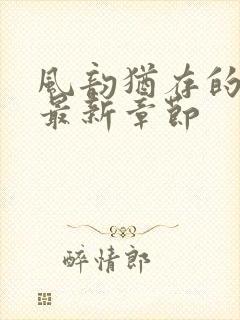 風韵猶存的
最新章節
醉情郎